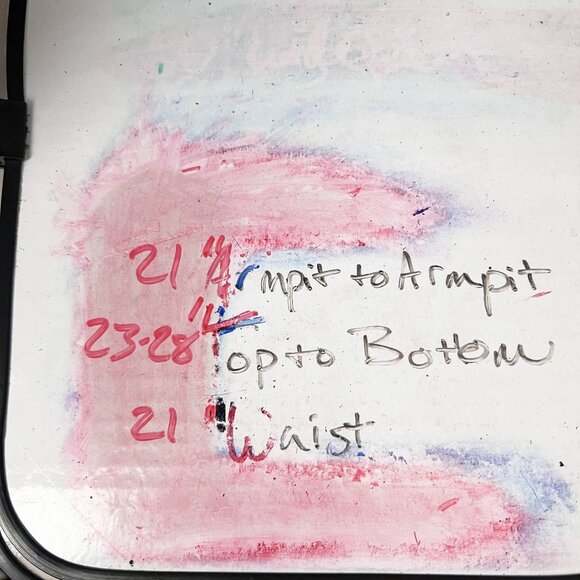 21" Armpit to Armpit
23-28" Top to Bottom
21" Waist